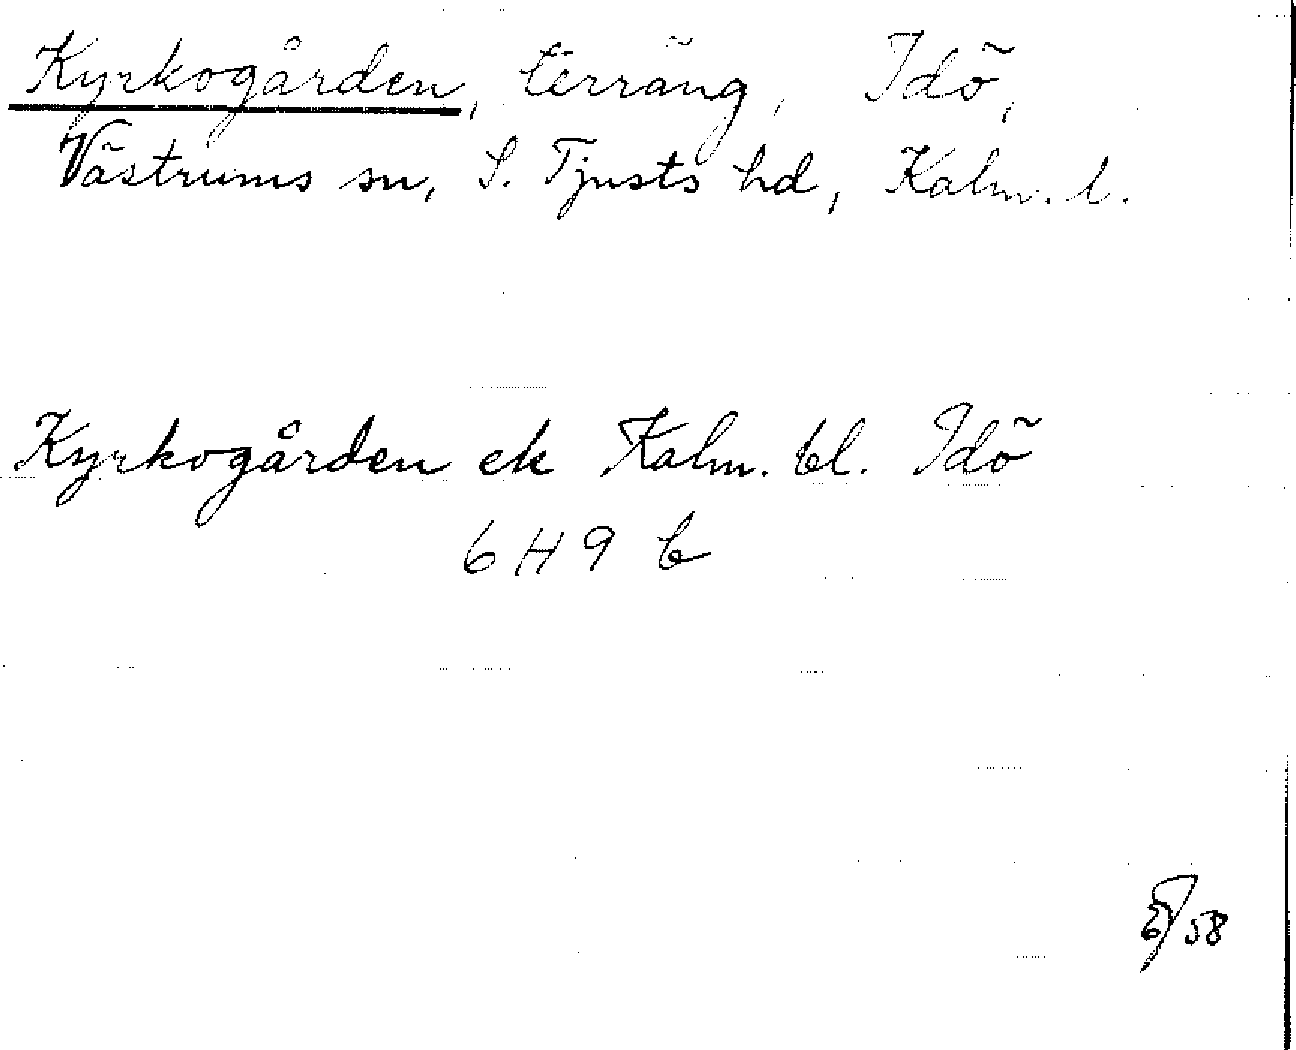 Kyrkogården, terräng, Idö,
Västrums sn, S. Tjusts hd, Kalm. l.
Kyrkogården ek Kalm. bl. Idö
6 H 9 b
58